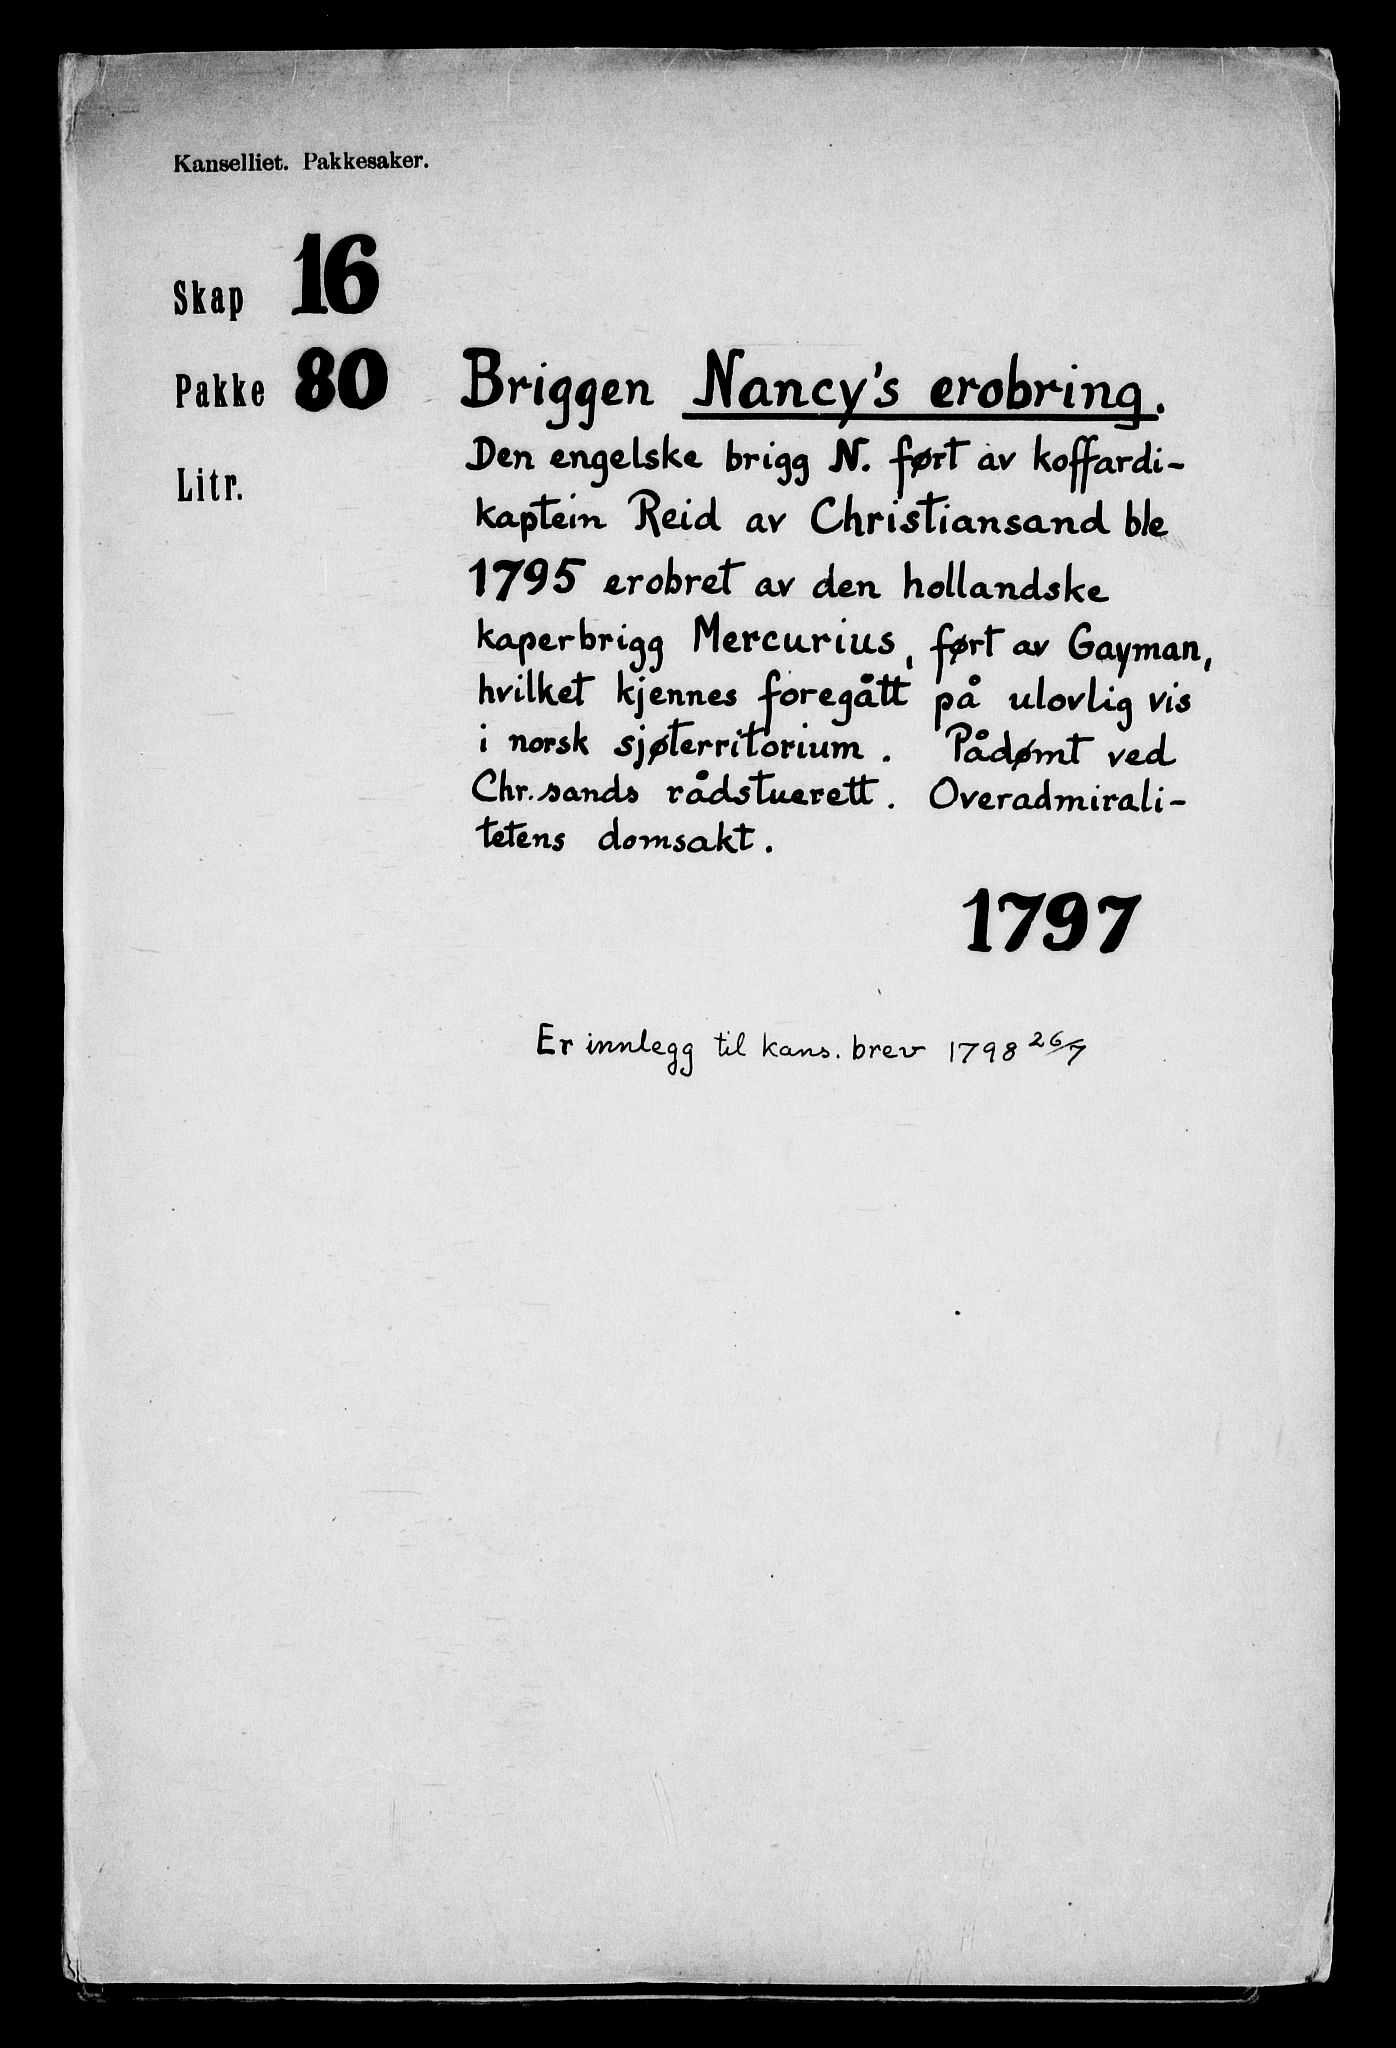 Kanselliet. Pakkesaker.
Skap 16
Pakke 80
Litr.
Briggen Nancy's erobring.
Den engelske brigg N. ført av koffardi-
kaptein Reid av Christiansand ble
1795 erobret av den hollandske
kaperbrigg Mercurius, ført av Gayman,
hvilket kjennes foregått på ulovlig vis
i norsk sjøterritorium. Pådømt ved
Chr.sands rådstuerett. Overadmirali-
tetens domsakt.
1797
Er innlegg til kans. brev 1798 26/7